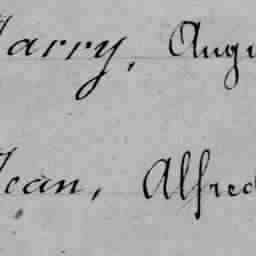 Jarry, Augu
Jean, Alfred